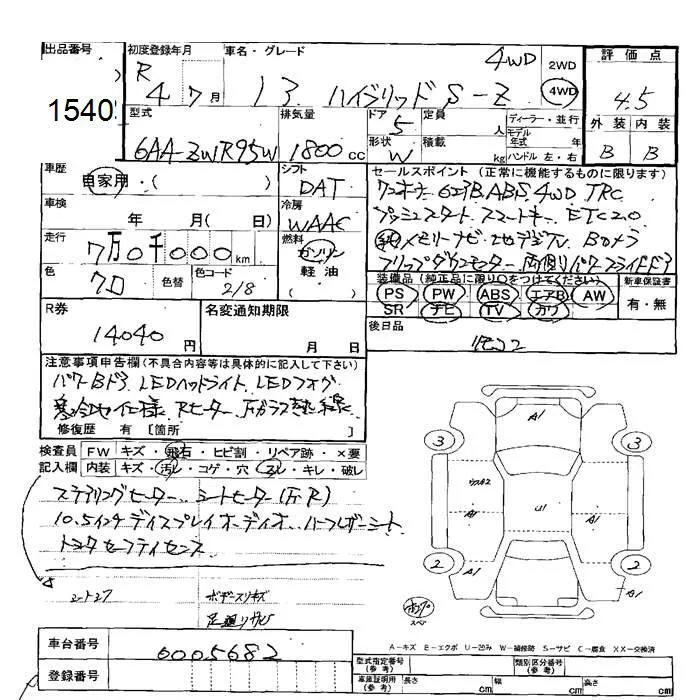 出品番号 初度登録年月 車名・グレード 評価点
15402
R 4 7月 13 ハイブリッド S-Z 4WD 2WD 4WD 4.5
型式 排気量 ドア 定員 ディーラー・並行 外装 内装
6AA-ZWR95W 1800cc 5 人 モデル年式 年 B B
形状 W 積載 kg ハンドル 左・右
車歴 自家用・( ) シフト DAT セールスポイント (正常に機能するものに限ります)
車検 年 月(日) 冷房 WAAC ワンオーナー 6エアB.ABS.4WD TRC
プッシュスタート スマートキー ETC2.0
走行 7万0千000km 燃料 ガソリン 軽油 ( ) 純メモリーナビ・地デジTV Bカメラ
フリップダウンモニター 両側パワースライドドア
色 クロ 色替 色コード 218 装備品(純正品に限り○をつけてください) 新車保証書
PS PW ABS エアB AW 有・無
SR ナビ TV カワ
R券 14040円 名変通知期限 月 日 後日品
注意事項申告欄(不具合内容等は具体的に記入して下さい)
パワーBドア LEDヘッドライト LEDフォグ
寒冷地仕様 Rヒーター Fガラス熱線
修復歴 有 [箇所 ]
検査員 FW キズ・飛石・ヒビ割・リペア跡・×要
記入欄 内装 キズ・汚レ・コゲ・穴・スレ・キレ・破レ
ステアリングヒーター シートヒーター(F.R)
10.5インチディスプレイオーディオ ハーフレザーシート
トヨタセーフティセンス
ボデースリキズ
足廻りサビ
A1
3 3
A1 U1 A1
2 2
A1 A1
スペア
A-キズ E-エクボ U-凹み W-補修跡 S-サビ C-腐食 XX-交換済
車台番号 6005682
登録番号
型式指定番号(参考) 類別区分番号(参考)
車庫証明用(参考) 長さ cm 幅 cm 高さ cm